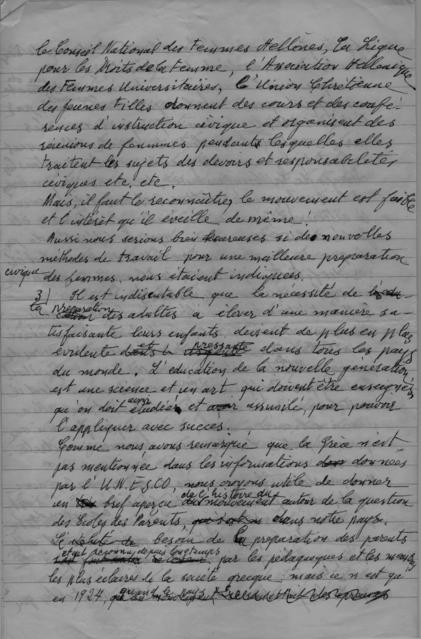 le Conseil National des Femmes Hellènes, La Ligue
pour les Droits de la Femme, l'Association Hellenique
des Femmes Universitaires, l'Union Chrétienne
des Jeunes Filles donnent des cours et des confé-
rences d'instruction civique et organisent des
réunions de femmes pendant lesquelles elles
traitent les sujets des devoirs et responsabilités
civiques etc. etc.
Mais, il faut le reconnaître, le mouvement est faible
et l'intérêt qu'il éveille de même!
Aussi nous serions bien heureuses si de nouvelles
méthodes de travail pour une meilleure preparation
civique
des femmes, nous étaient indiquées.
3) Il est indiscutable que la nécessité de
la préparation des adultes a élever d'une manière sa-
tisfaisante leurs enfants devient de plus en plus
évidente et pressante dans tous les pays
du monde. L'éducation de la nouvelle génération
est une science et un art qui doivent être enseignés
qu'on doit étudier et assimilé, pour pouvoir
l'appliquer avec succès.
Comme nous avons remarqué que la Grèce n'est
pas mentionnée dans les informations données
par l'U.N.E.S.C.O, nous croyons utile de donner
un bref aperçu de l'histoire du mouvement autour de la question
des Ecoles des Parents, dans notre pays.
Le besoin de la preparation des parents
depuis longtemps par les pédagogues et les
les plus éclairés de la société grecque, mais ce n'est qu'
en 1924